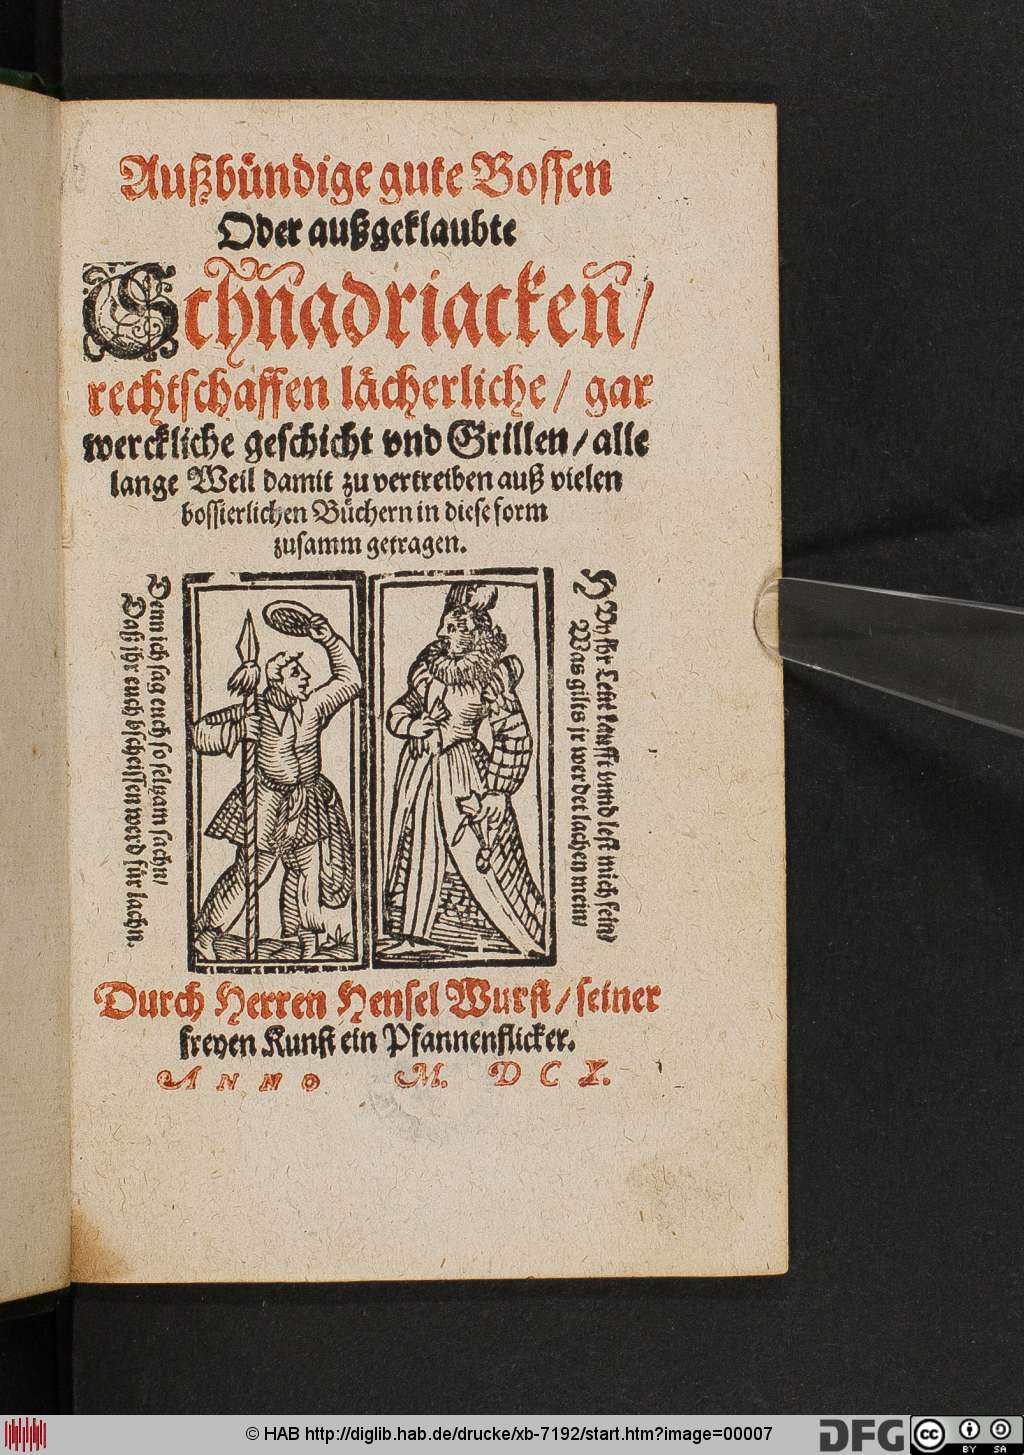 Außbündige gute Bossen
Oder außgeklaubte
Schnadriacken/
rechtschaffen lächerliche/ gar
werckliche geschicht vnd Grillen/ alle
lange Weil damit zu vertreiben auß vielen
bossierlichen Büchern in diese form
zusamm getragen.
Hüy jhr Leut kaufft vnnd lest mich fein/
Was gilts jr werdet lachen mein/
Denn ich sag euch so seltzam sachn/
Daß jhr euch bscheissen werd für lachn.
Durch Herren Hensel Wurst/ seiner
freyen Kunst ein Pfannenflicker.
ANNO M. DCX.
© HAB http://diglib.hab.de/drucke/xb-7192/start.htm?image=00007
DFG
cc BY SA